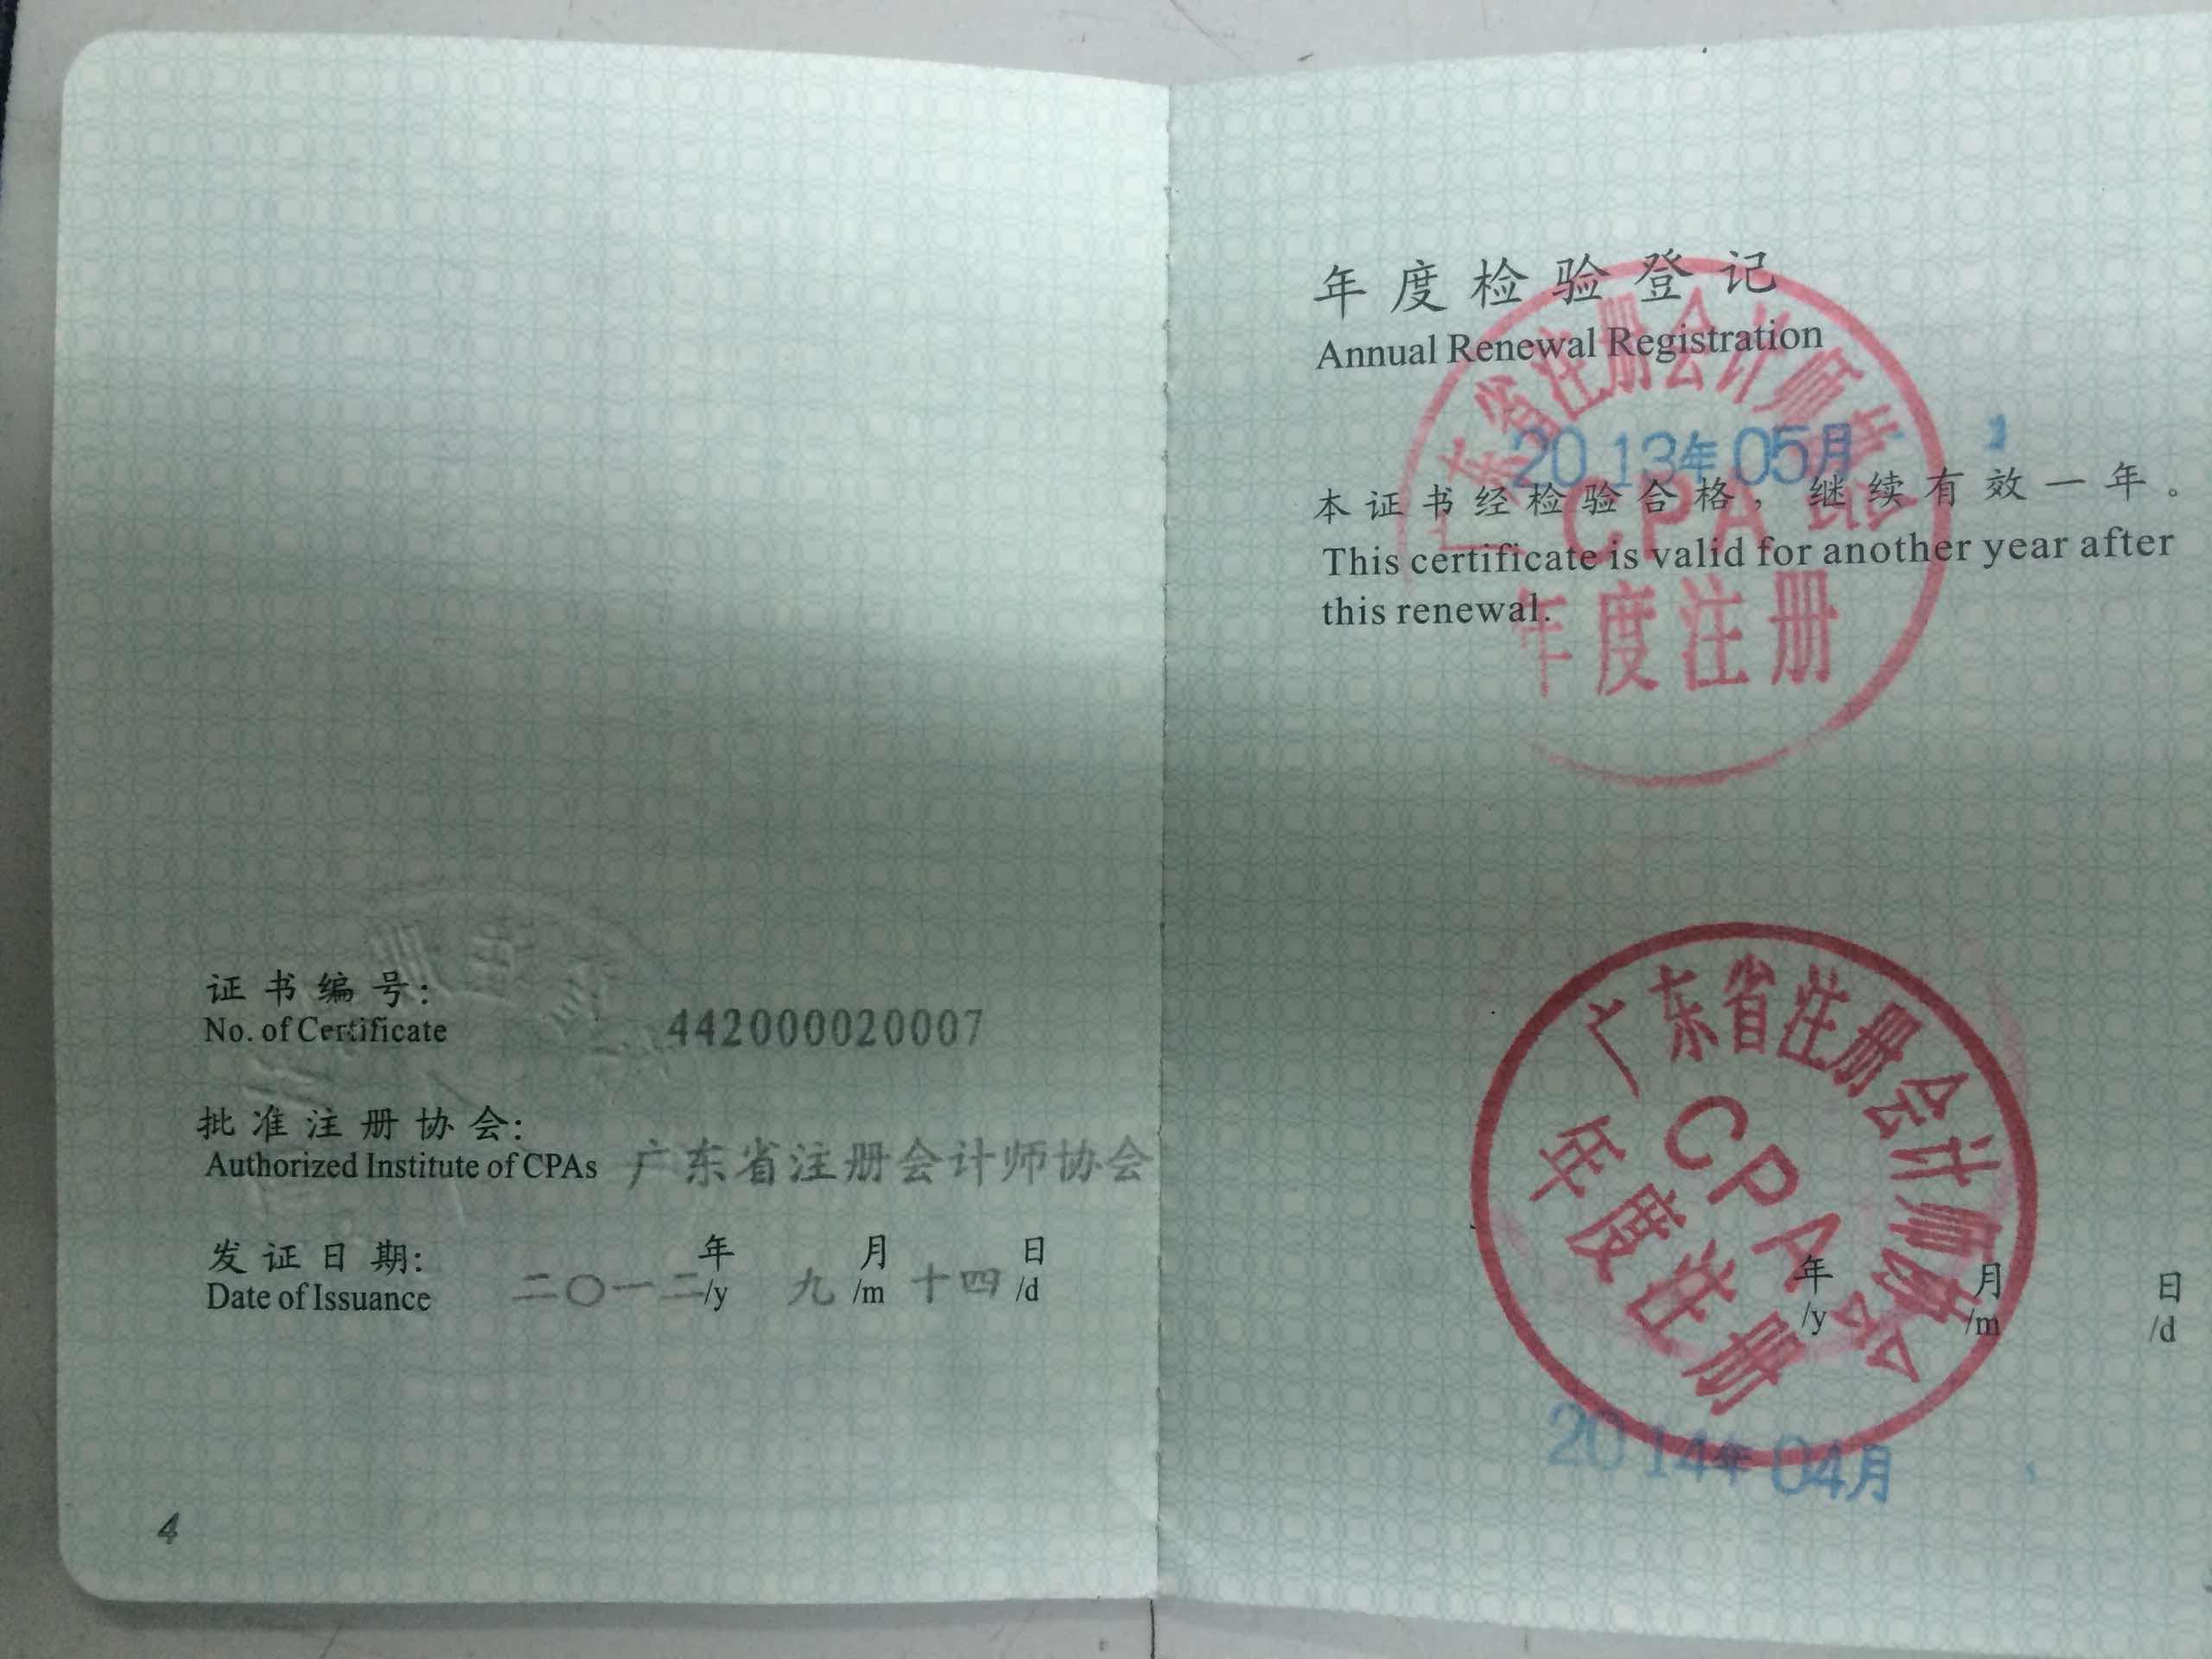 证书编号:
No. of Certificate
442000020007
批准注册协会:
Authorized Institute of CPAs 广东省注册会计师协会
发证日期:
Date of Issuance
二〇一二年/y 九月/m 十四日/d
4
年度检验登记
Annual Renewal Registration
广东省注册会计师协会
2013年05月
CPA
年度注册
本证书经检验合格，继续有效一年。
This certificate is valid for another year after
this renewal.
广东省注册会计师协会
CPA
年度注册
年 月 日
/y /m /d
2014年04月